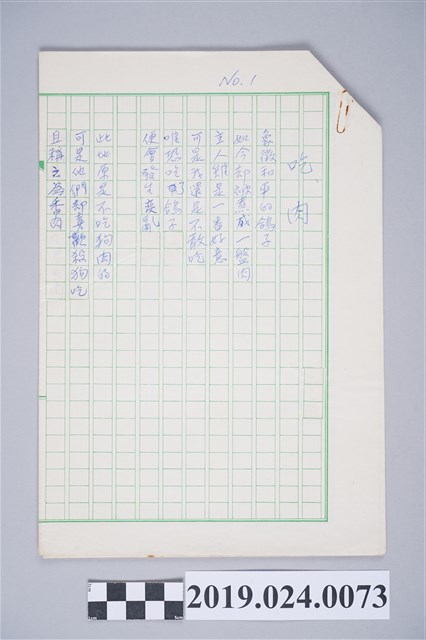 No. 1
吃肉
象徵和平的鴿子
如今却被煮成一盤肉
主人雖是一番好意
可是我還是不敢吃
唯恐吃了鴿子
便會發生變亂
此地原是不吃狗肉的
可是他們却喜歡殺狗吃
且稱之為香肉
2019.024.0073